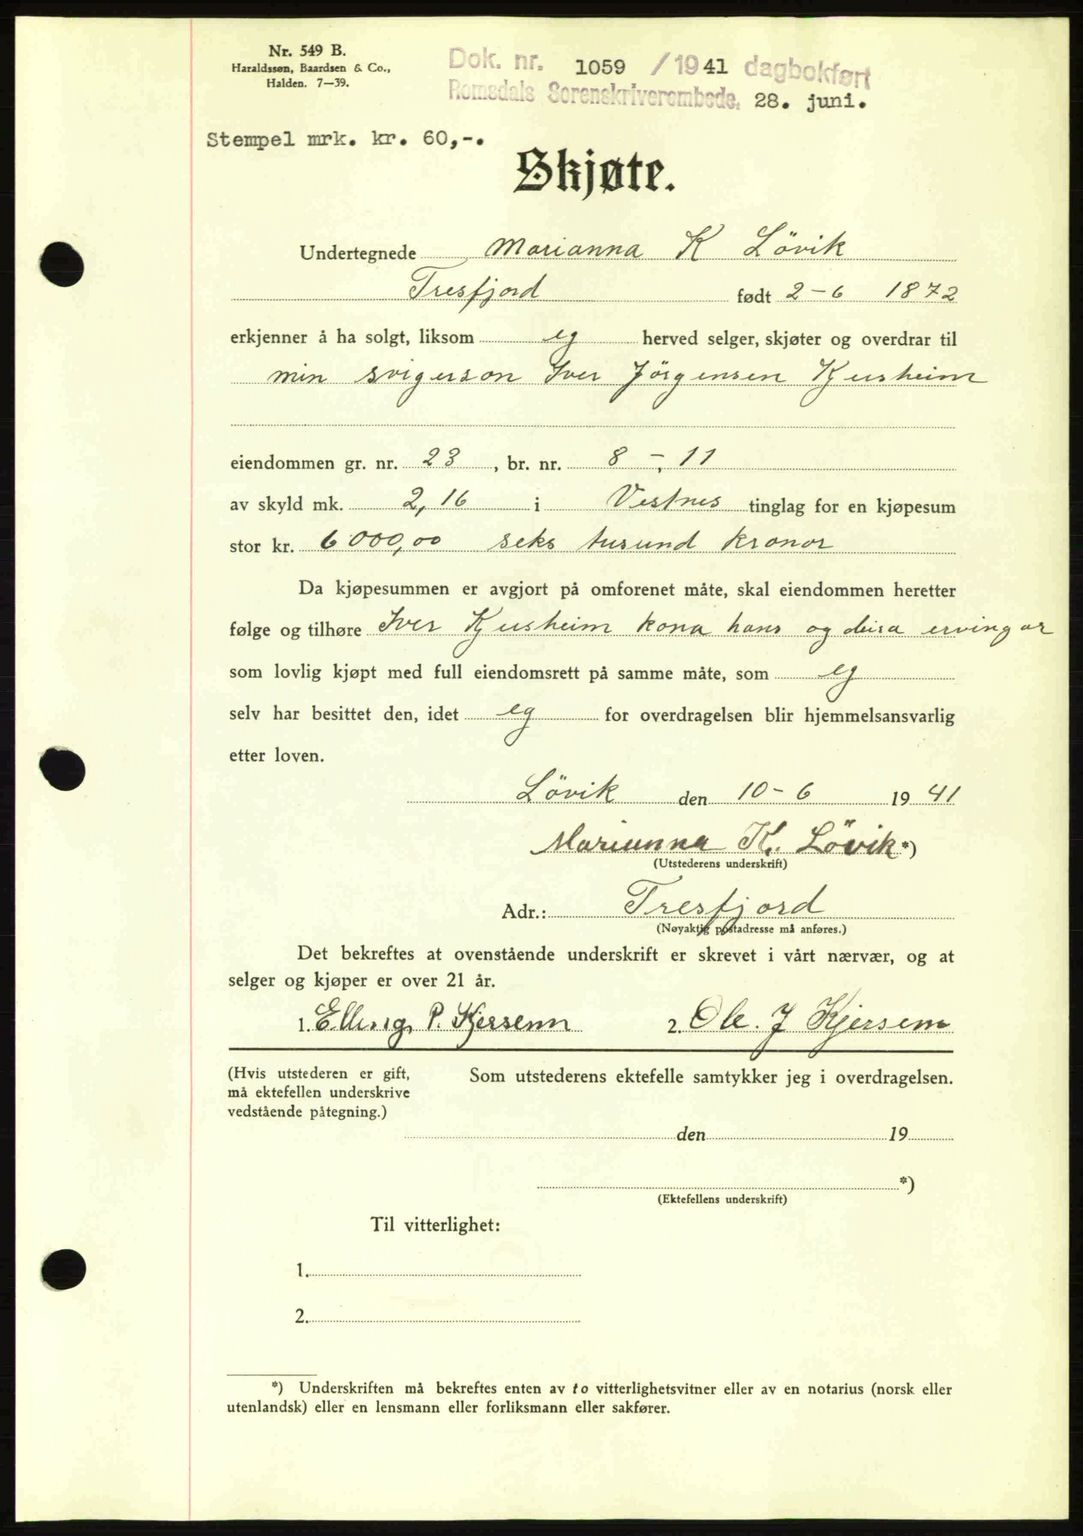 Nr. 549 B.
Haraldssøn, Baardsen & Co.,
Halden. 7—39.
Dok. nr. 1059 /1941 dagbokført
Romsdals Sorenskriverembede, 28. juni.
Stempel mrk. kr. 60,-.
Skjøte.
Undertegnede Marianna K Lövik
Tresfjord født 2-6 1872
erkjenner å ha solgt, liksom eg herved selger, skjøter og overdrar til
min svigerson Iver Jörgensen Kjersheim
eiendommen gr. nr. 23, br. nr. 8-, 11
av skyld mk. 2,16 i Vestnes tinglag for en kjøpesum
stor kr. 6000,00 seks tusund kronor
Da kjøpesummen er avgjort på omforenet måte, skal eiendommen heretter
følge og tilhøre Iver Kjersheim kona hans og deira ervingar
som lovlig kjøpt med full eiendomsrett på samme måte, som eg
selv har besittet den, idet eg for overdragelsen blir hjemmelsansvarlig
etter loven.
Lövik den 10-6 1941
Marianna K. Lövik *)
(Utstederens underskrift)
Adr.: Tresfjord
(Nøyaktig postadresse må anføres.)
Det bekreftes at ovenstående underskrift er skrevet i vårt nærvær, og at
selger og kjøper er over 21 år.
1. Elling P. Kjersem 2. Ole. J Kjersem
(Hvis utstederen er gift, Som utstederens ektefelle samtykker jeg i overdragelsen.
må ektefellen underskrive
vedstående påtegning.)
den 19
*)
(Ektefellens underskrift)
Til vitterlighet:
1.
2.
*) Underskriften må bekreftes enten av to vitterlighetsvitner eller av en notarius (norsk eller
utenlandsk) eller en lensmann eller forliksmann eller sakfører.